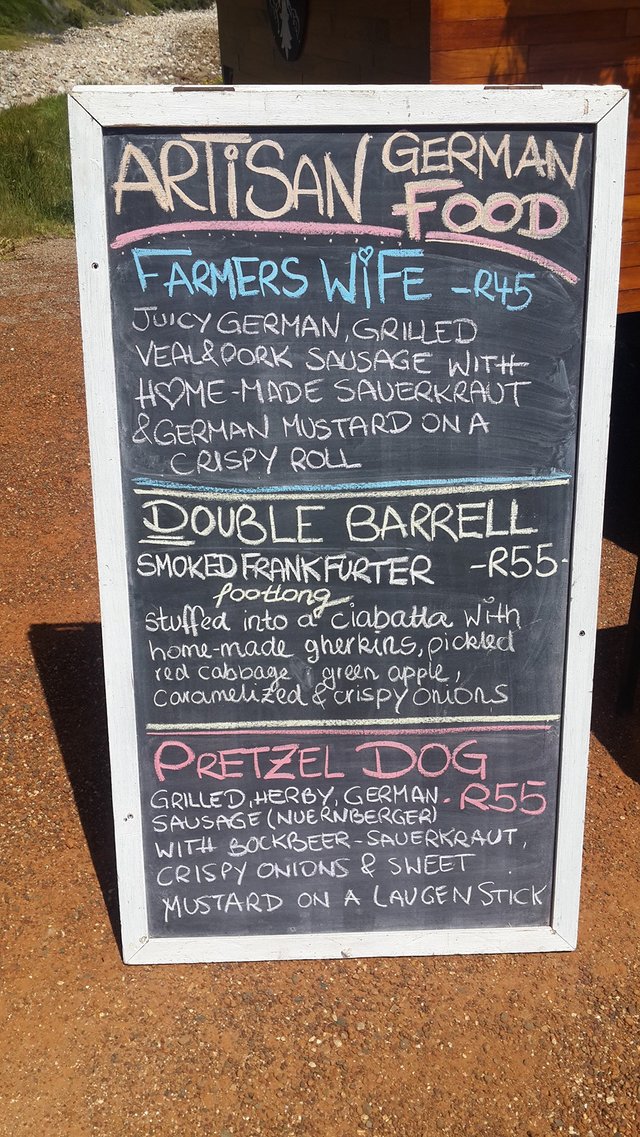 ARTISAN GERMAN FOOD
FARMERS WIFE -R45
JUICY GERMAN, GRILLED
VEAL & PORK SAUSAGE WITH
H♡ME-MADE SAUERKRAUT
& GERMAN MUSTARD ON A
CRISPY ROLL
DOUBLE BARRELL
SMOKED FRANKFURTER -R55-
footlong
stuffed into a ciabatta with
home-made gherkins, pickled
red cabbage, green apple,
caramelized & crispy onions
PRETZEL DOG
GRILLED, HERBY, GERMAN - R55
SAUSAGE (NUERNBERGER)
WITH BOCKBEER-SAUERKRAUT,
CRISPY ONIONS & SWEET
MUSTARD ON A LAUGEN STICK